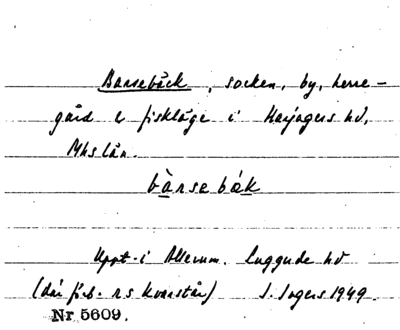 Barsebäck, socken, by, herre-
gård & fiskläge i Harjagers hd,
Mhs län.
bàrsebäk
Uppt. i Allerum. Luggude hd
(där förb. rs kvarstår) I. Ingers 1949.
Nr 5609.